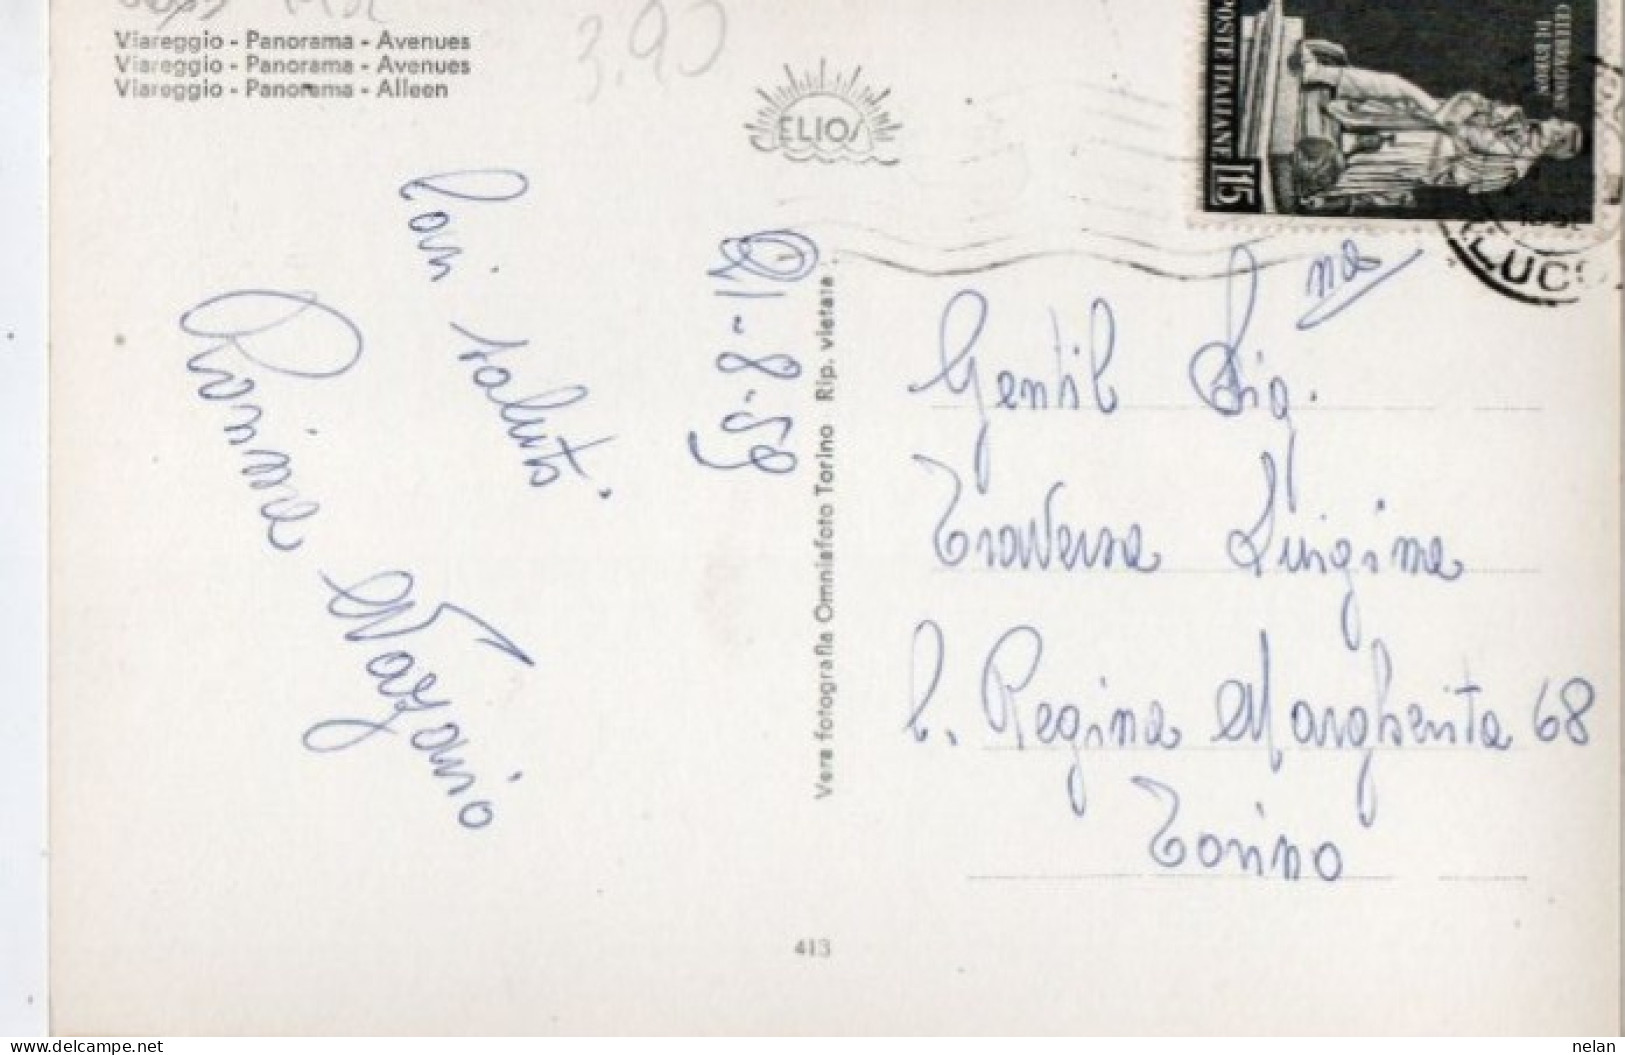 Viareggio - Panorama - Avenues
Viareggio - Panorama - Avenues
Viareggio - Panorama - Alleen
3.90
ELIOS
POSTE ITALIANE
L15
CELEBRAZIONI
DI BYRON
LUCCA
21-8-59
Cari saluti
Nazario
Vera fotografia Omniafoto Torino Rip. vietata
Gentil Sig.na
Traversa Luigina
C. Regina Margherita 68
Torino
413
https://www.delcampe.net
nelan